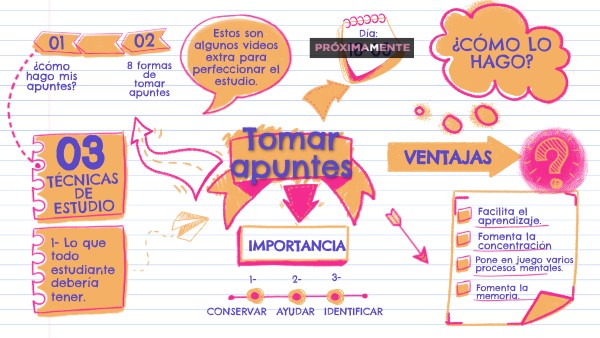 01
02
¿cómo
hago mis
apuntes?
8 formas
de
tomar
apuntes
Estos son
algunos videos
extra para
perfeccionar el
estudio.
Día:
PRÓXIMAMENTE
¿CÓMO LO
HAGO?
03
TÉCNICAS
DE
ESTUDIO
Tomar
apuntes
VENTAJAS
?
1- Lo que
todo
estudiante
debería
tener.
IMPORTANCIA
1-
2-
3-
CONSERVAR
AYUDAR
IDENTIFICAR
Facilita el
aprendizaje.
Fomenta la
concentración
Pone en juego varios
procesos mentales.
Fomenta la
memoria.